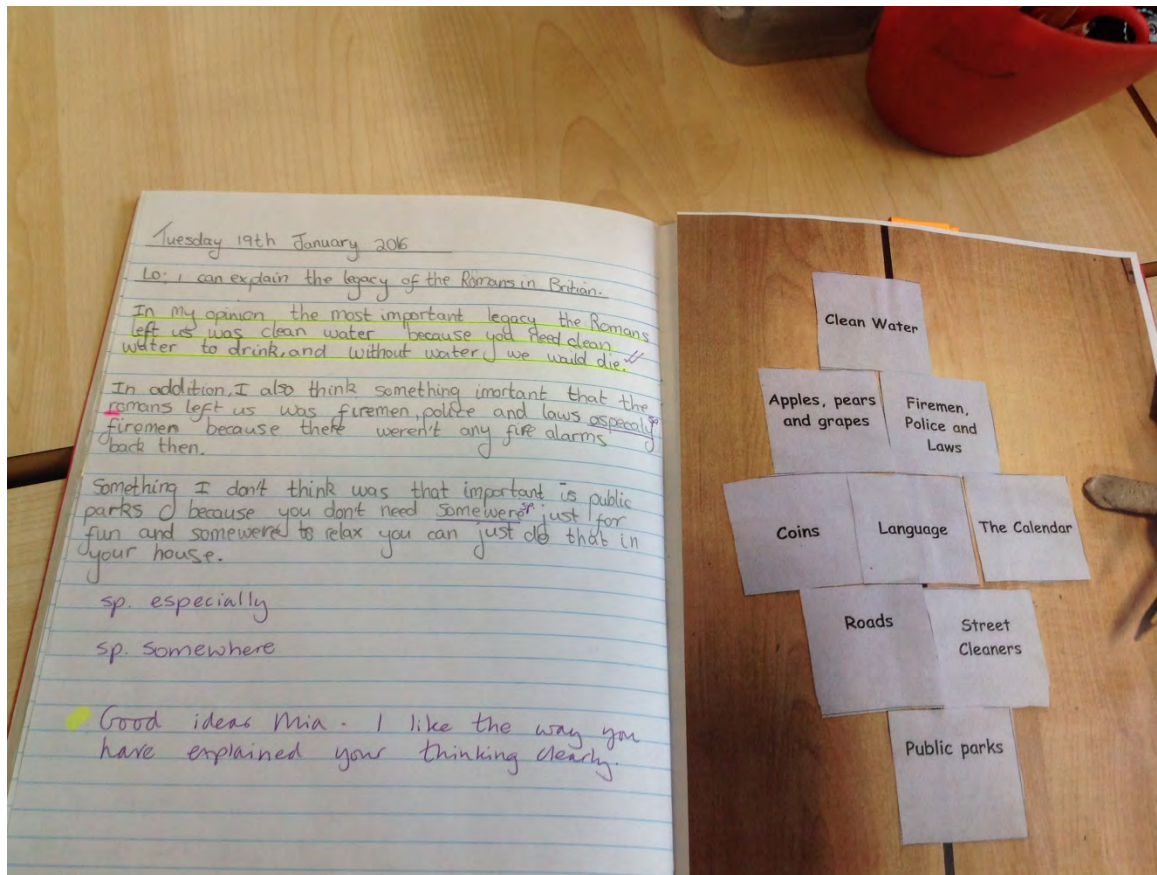 Tuesday 19th January 2016
Lo: i can explain the legacy of the Romans in Britian.
In my opinion the most important legacy the Romans
left us was clean water because you need clean
water to drink, and without water we would die.
In addition, I also think something imortant that the
romans left us was firemen, police and laws especaly sp
firemen because there weren't any fire alarms
back then.
Something I don't think was that important is public
parks because you don't need somewere sp just for
fun and somewere to relax you can just do that in
your house.
sp. especially
sp. somewhere
Good ideas Mia. I like the way you
have explained your thinking clearly.
Clean Water
Apples, pears
and grapes
Firemen,
Police and
Laws
Coins
Language
The Calendar
Roads
Street
Cleaners
Public parks